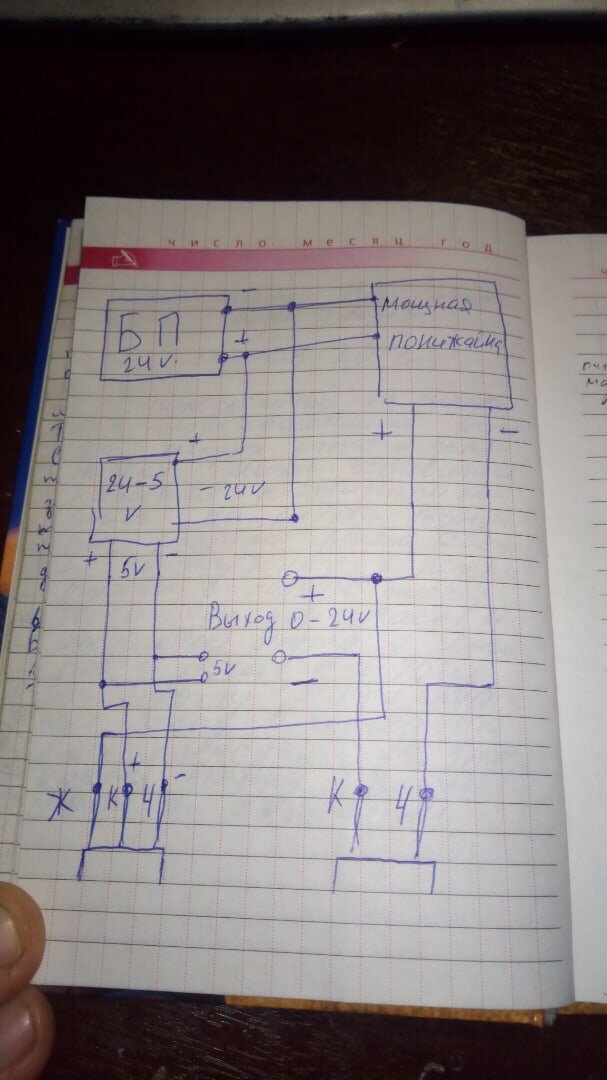 число месяц год
-
БП
24V.
+
мощная
понижайка
+
-
+
24-5
V
- 24V
+
5V
-
+
Выход 0-24V
5V
-
+
-
Ж
К
Ч
К
Ч